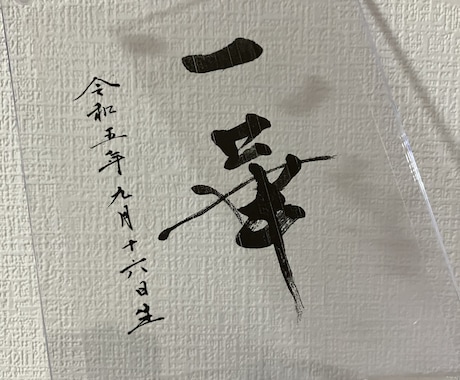 一華
令和五年九月十六日生